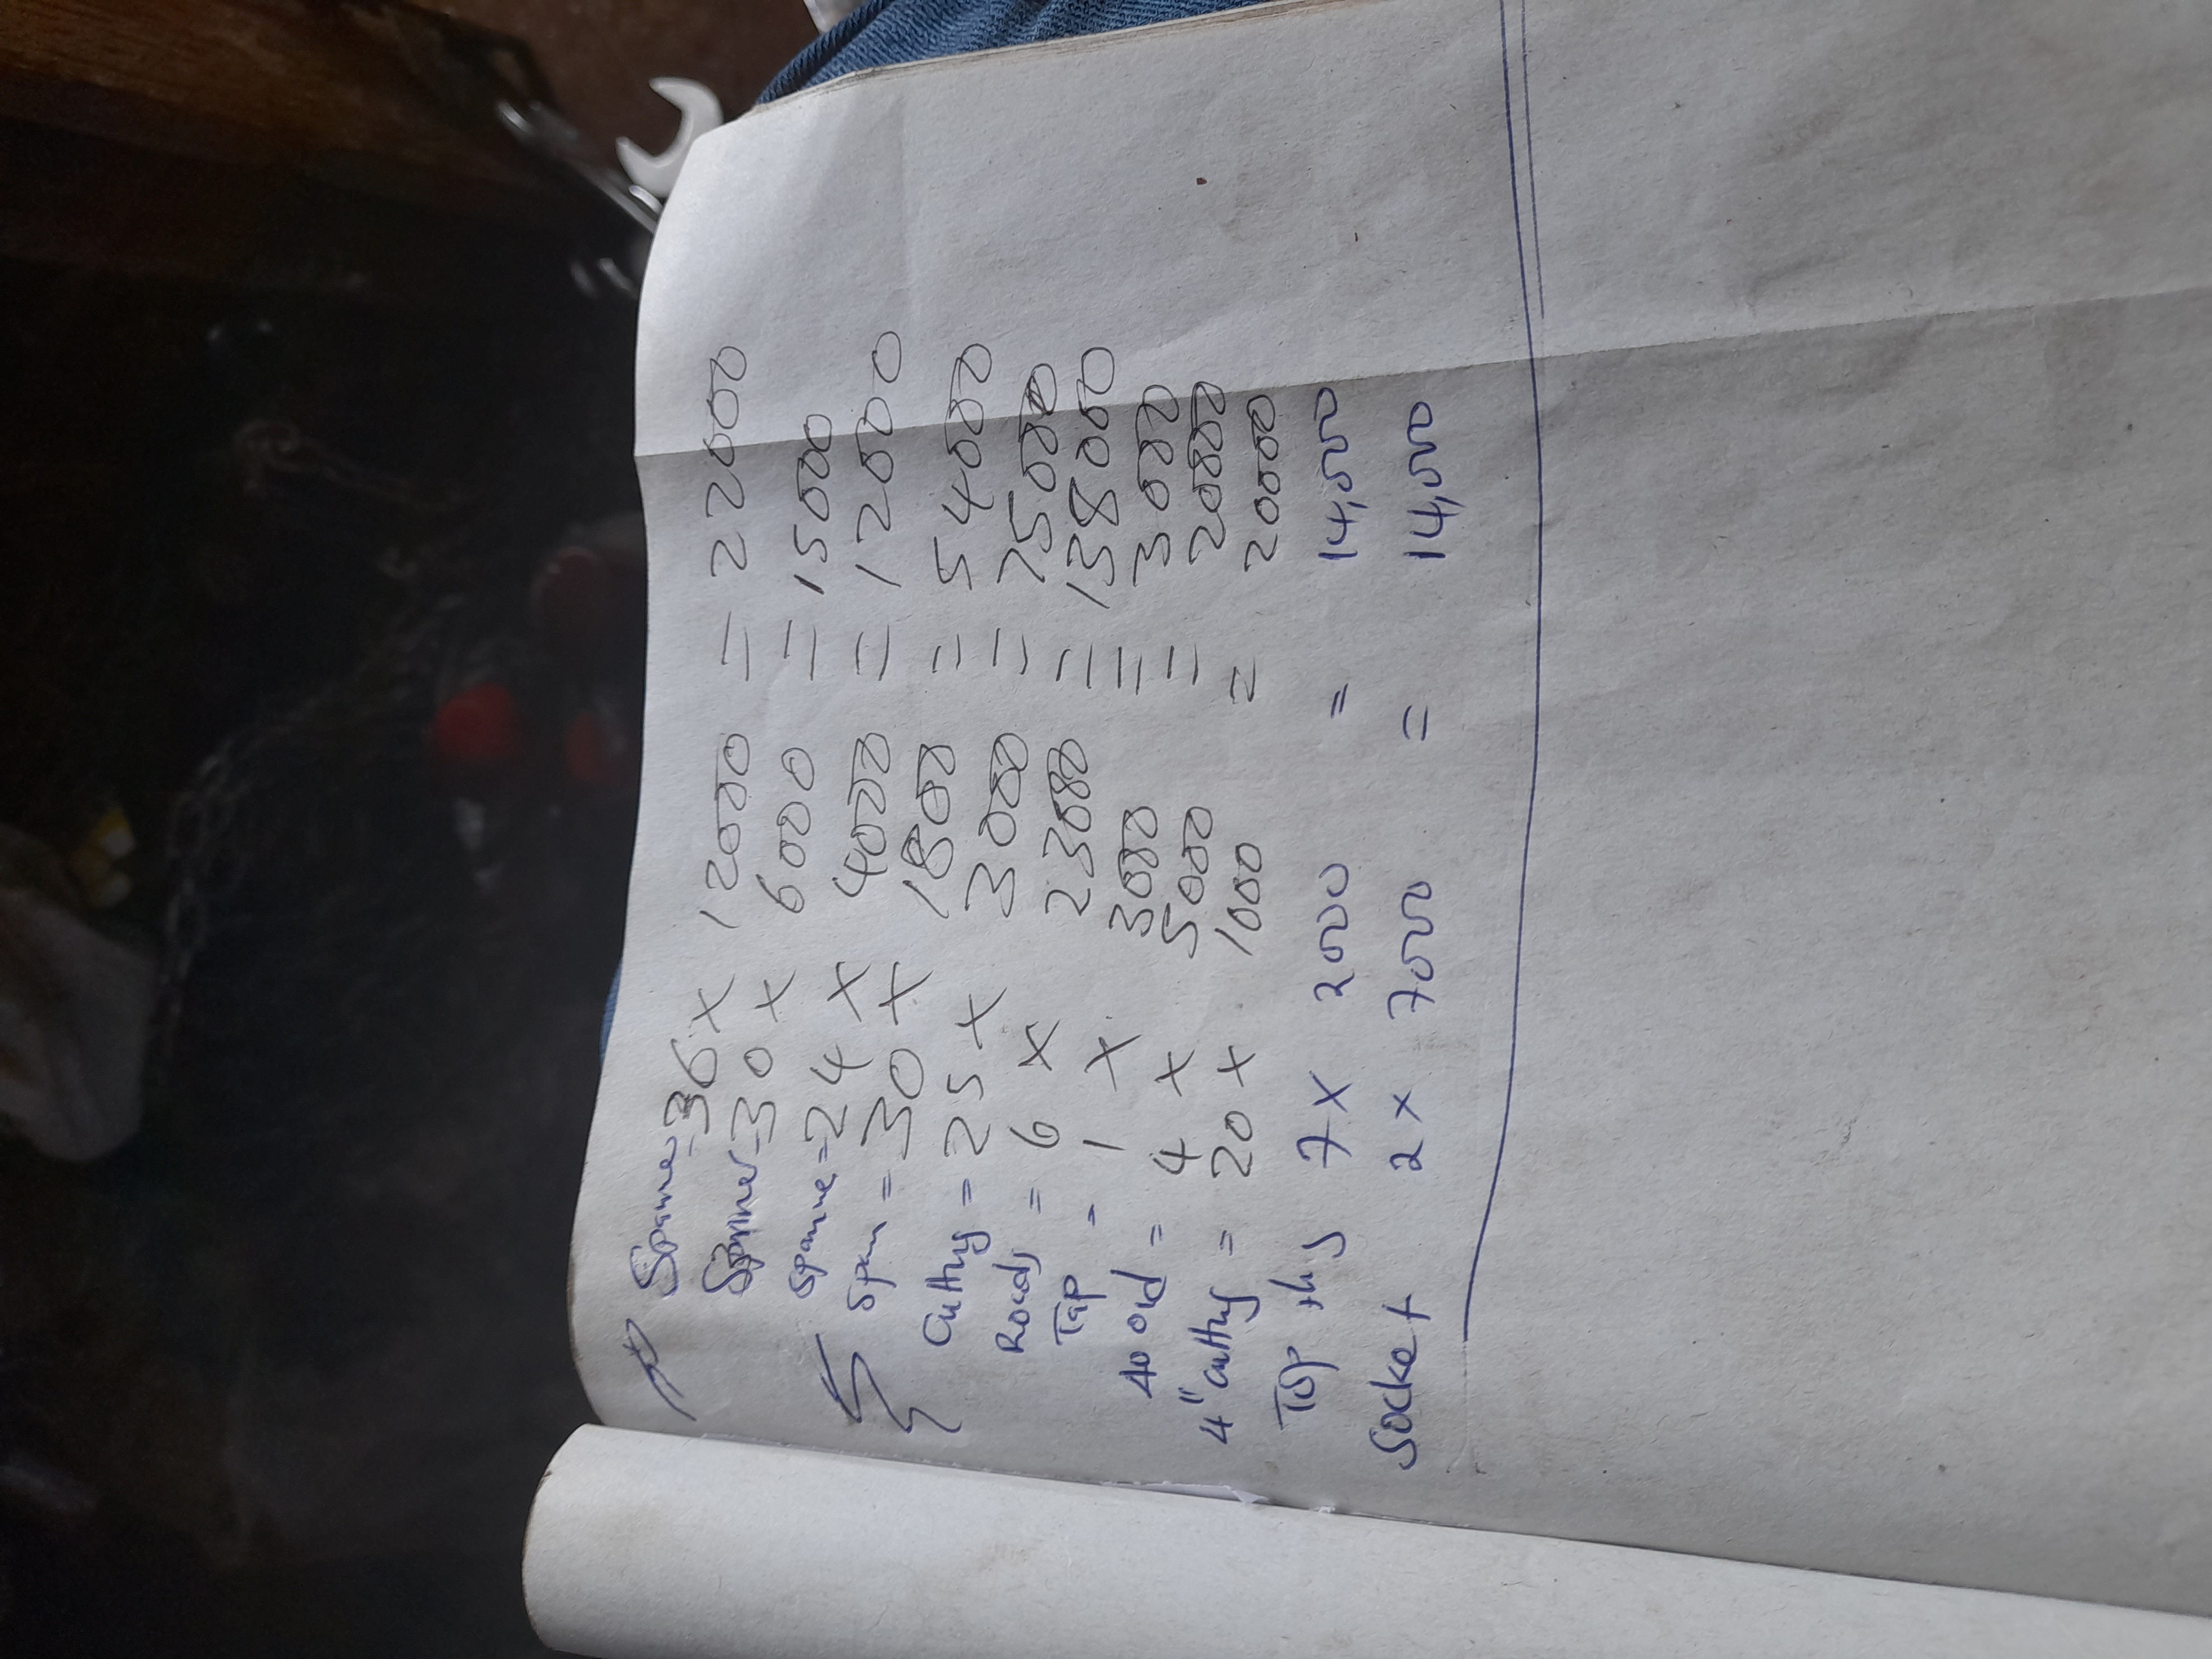 Spanne = 36 x 12000 = 22000
Spanner = 30 x 6000 = 15000
spanne = 24 x 4000 = 12000
Span = 30 x 1800 = 54000
Cutting = 25 x 3000 = 75000
Roads = 6 x 23000 = 138000
Tap = 1 x 3000 = 3000
= 4 x 5000 = 20000
4" cutting = 20 x 1000 = 20000
Top 7 x 2000 = 14,000
Socket 2 x 7000 = 14,000